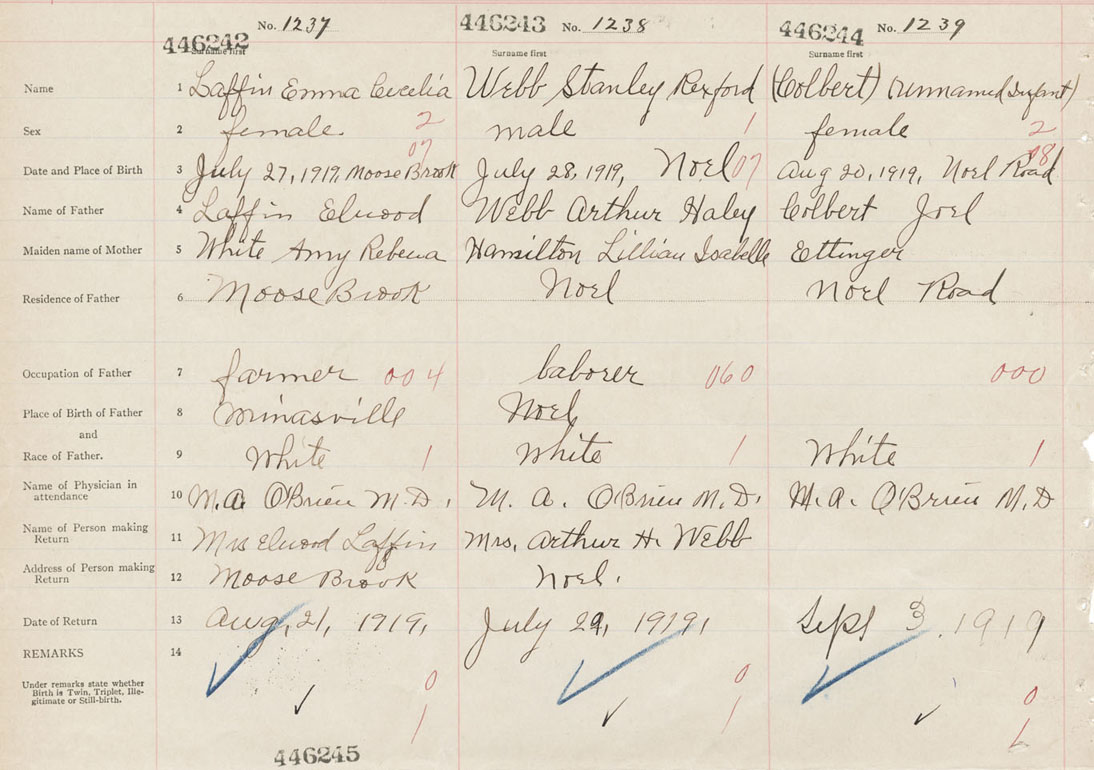 No. 1237 446243 No. 1238 446244 No. 1239
446242
Surname first Surname first Surname first
Name 1 Laffin Emma Cecelia Webb Stanley Rexford (Colbert) (unnamed Infant)
Sex 2 female. 2 male 1 female 2
07 08
Date and Place of Birth 3 July 27, 1919, Moose Brook July 28, 1919, Noel 07 Aug 20, 1919, Noel Road
Name of Father 4 Laffin Elwood Webb Arthur Haley Colbert Joel
Maiden name of Mother 5 White Amy Rebecca Hamilton Lillian Isabelle Ettinger
Residence of Father 6 Moose Brook Noel Noel Road
Occupation of Father 7 farmer 004 laborer 060 000
Place of Birth of Father 8 Minasville Noel
and
Race of Father. 9 White 1 White 1 White 1
Name of Physician in
attendance 10 M.A. O'Brien M.D. M. A. O'Brien M.D. M.A. O'Brien M.D
Name of Person making
Return 11 Mrs Elwood Laffin Mrs. Arthur H. Webb
Address of Person making
Return 12 Moose Brook Noel.
Date of Return 13 Aug, 21, 1919, July 29, 1919, Sept 3, 1919
REMARKS 14
Under remarks state whether
Birth is Twin, Triplet, Ille-
gitimate or Still-birth.
0 0 0
1 1
446245